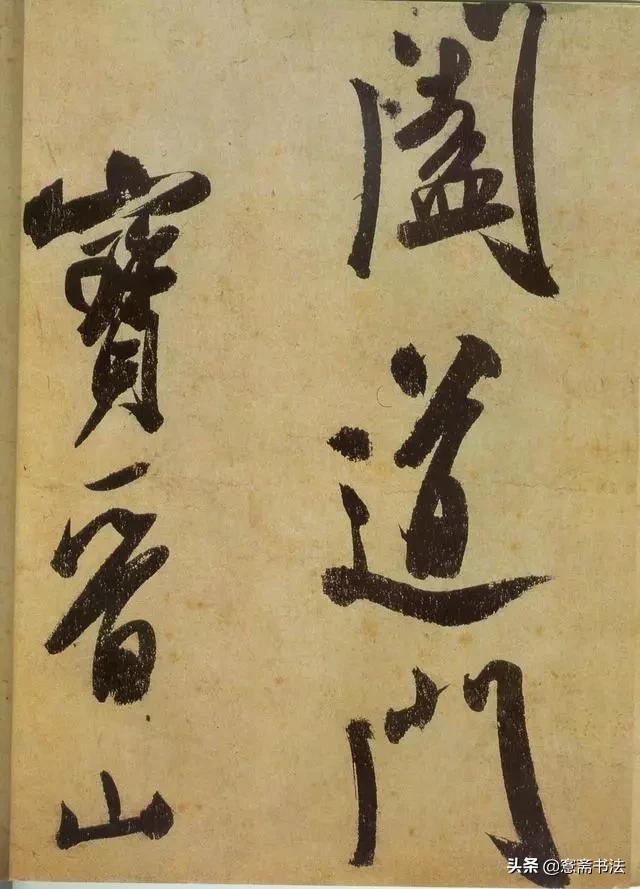 闔道門
寶晉山
头条 @愙斋书法